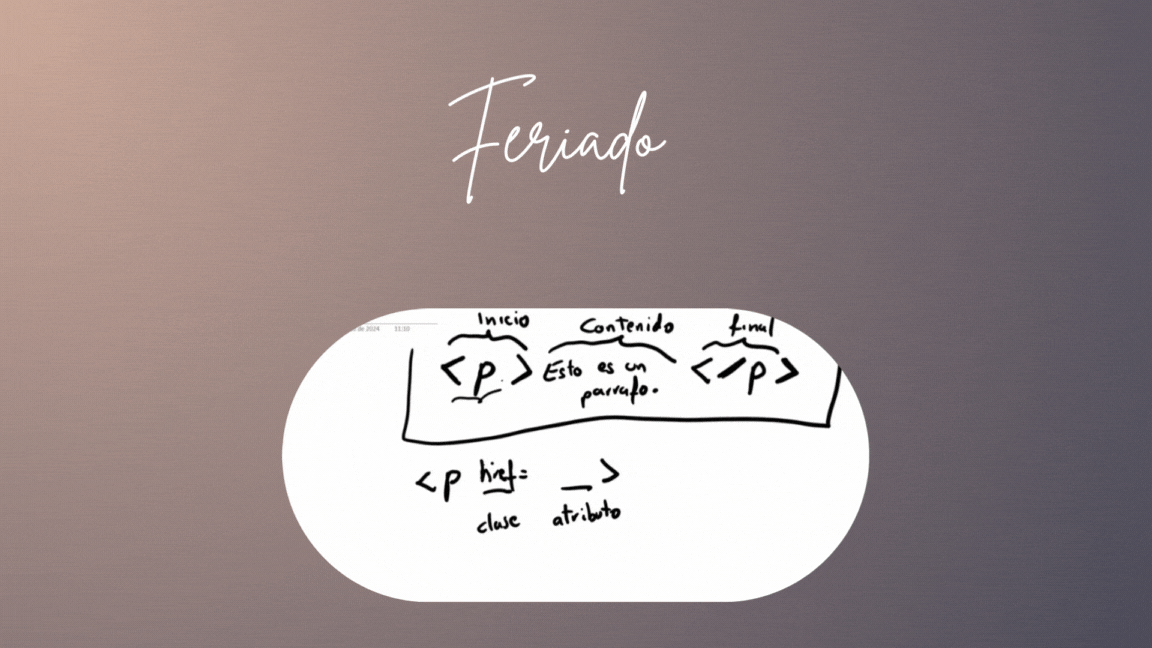 Feriado
de 2024 11:10
Inicio Contenido final
<p> Esto es un </p>
parrafo.
<p href= __>
clase atributo